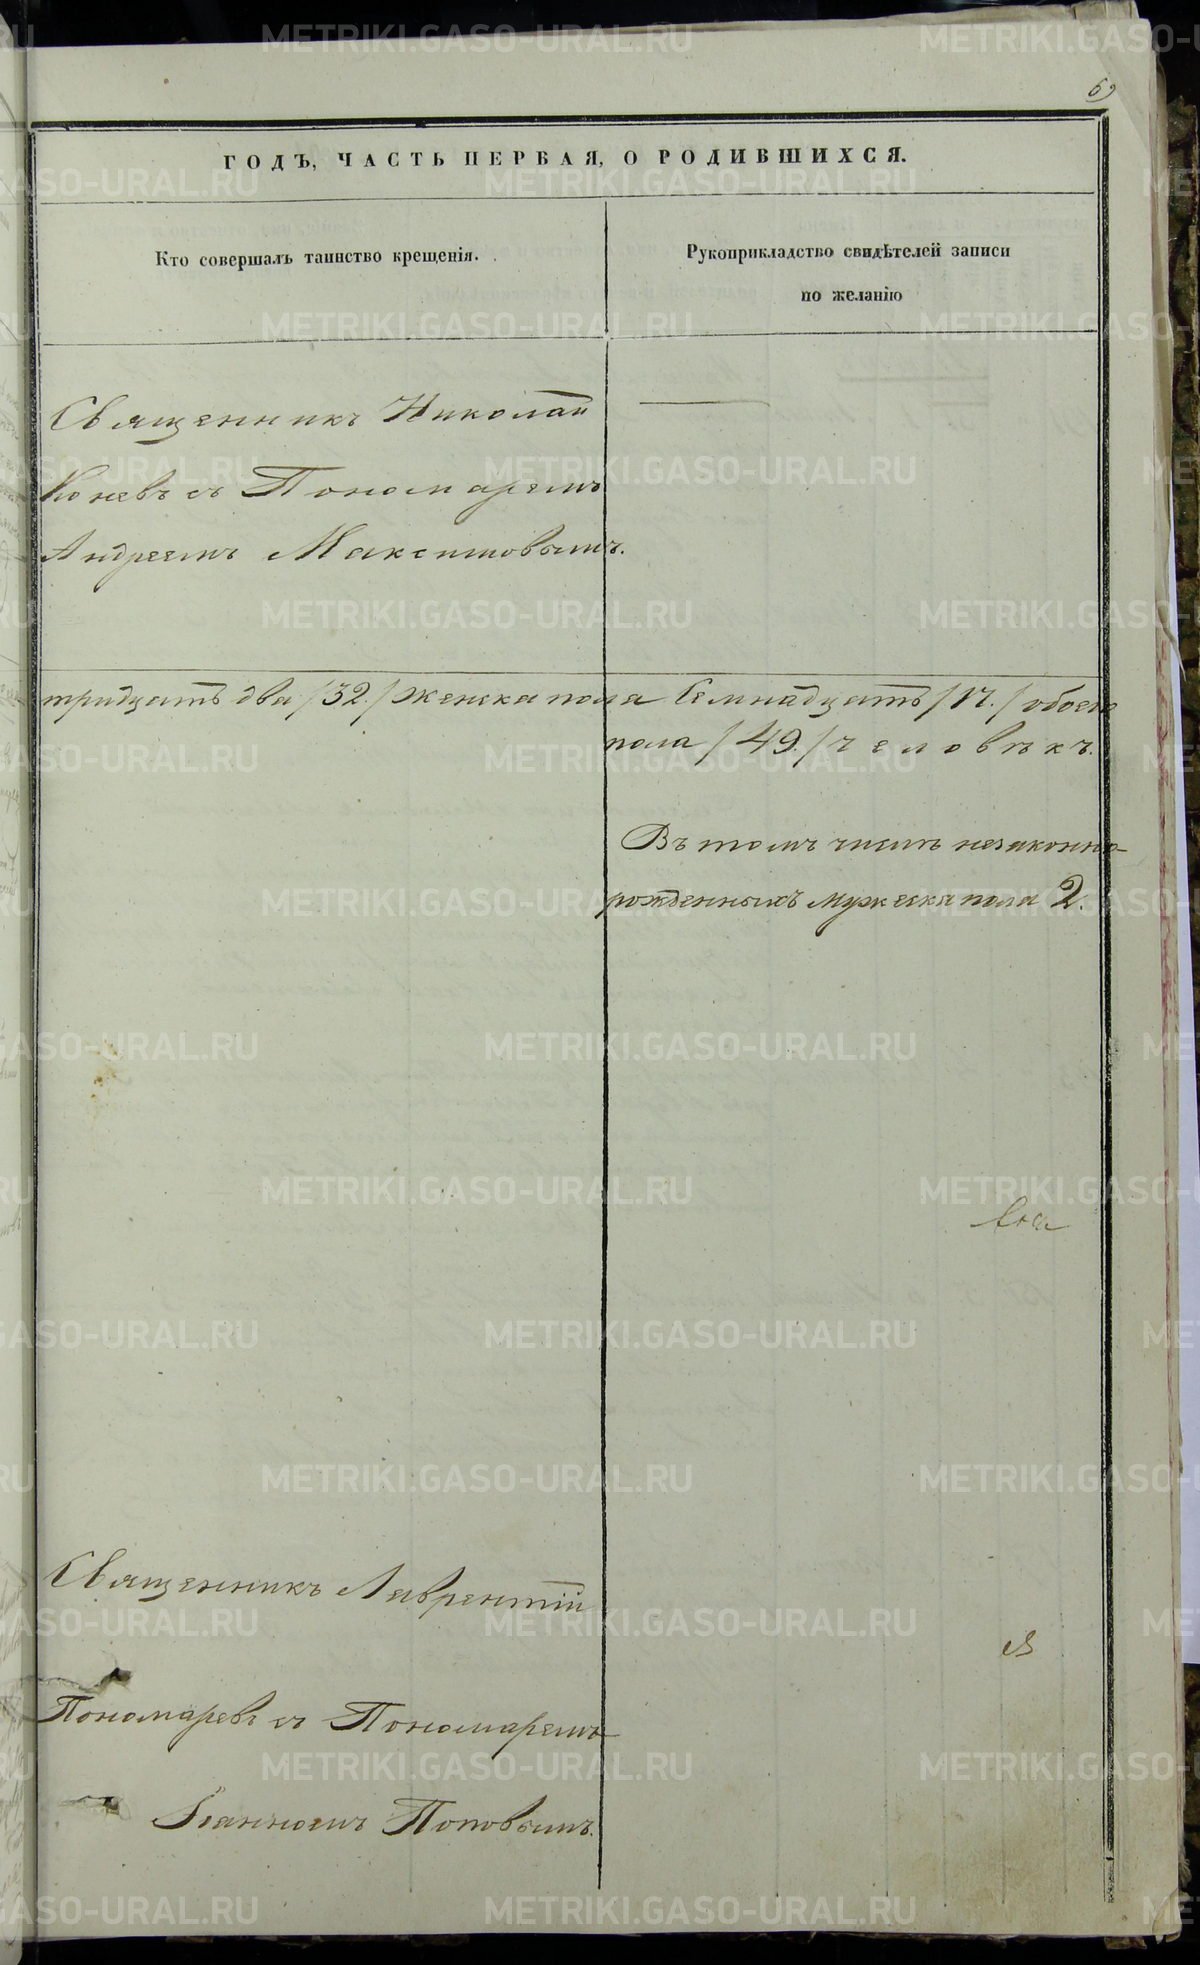 69
ГОДЪ, ЧАСТЬ ПЕРВАЯ, О РОДИВШИХСЯ.
Кто совершалъ таинство крещенія.
Рукоприкладство свидѣтелей записи
по желанію
Священникъ Николай
Коневъ съ Пономаремъ
Андреемъ Максимовымъ.
тридцать два /32./ женска пола Семнадцать /17./ обоего
пола /49./ человѣкъ.
Въ томъ числѣ незаконно
рожденныхъ мужеска пола 2.
Священникъ Лаврентій
Пономаревъ съ Пономаремъ
Іоанномъ Поповымъ.
METRIKI.GASO-URAL.RU